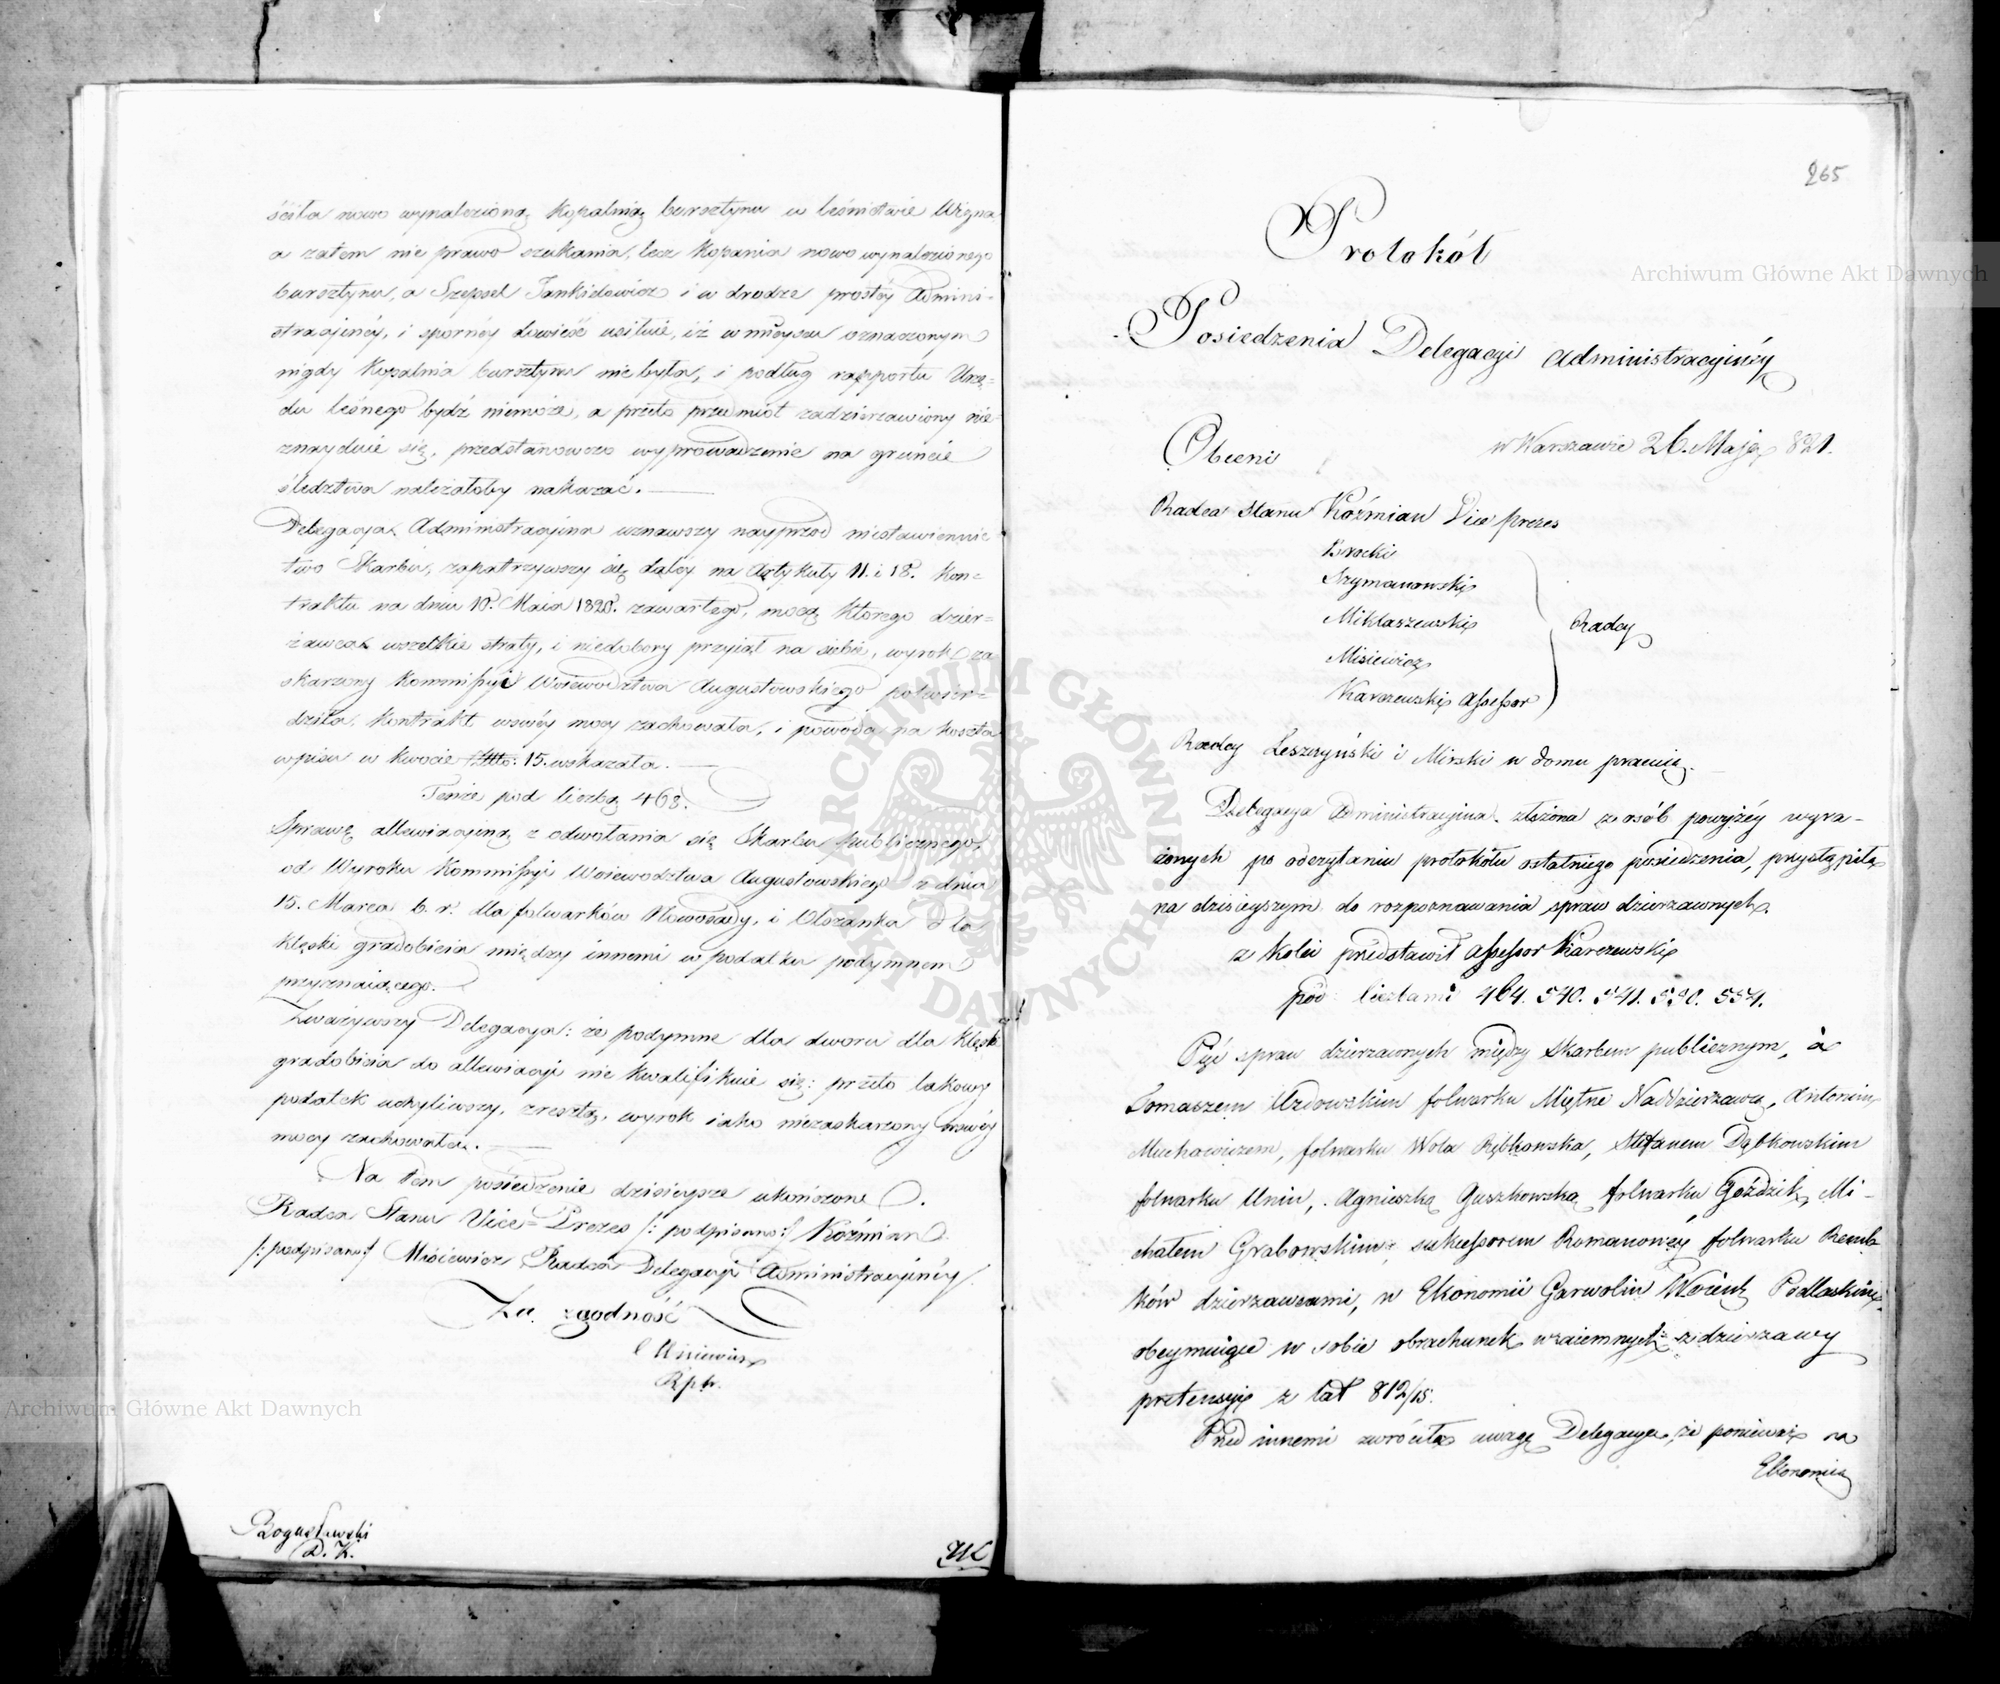 ściła nowo wynalezioną Kopalnią bursztynu w leśnictwie Wigra
a zatem nie prawo szukania, lecz Kopania nowo wynalezionego
bursztynu, a Szepsel Jankielowicz i w drodze prostéy Admini-
stracyinéy, i spornéy dowieść usiłuie, iż w mieyscu oznaczonym
nigdy Kopalnia bursztynu nie była, i podług rapportu Urzę-
du leśnego bydź niemoże, a przeto przedmiot zadzierżawiony nie
znayduie się, przedstanowczo wyprowadzenie na gruncie
śledztwa należałoby nakazać.
Delegacya Administracyina uznawszy nayprzód niestawiennic
two Skarbu, zapatrzywszy się daley na Artykuły 11. i 18. Kon=
traktu na dniu 10. Maia 1820. zawartego, mocą którego dzier=
żawca wszelkie straty, i niedobory przyiął na siebie, wyrok za
skarżony Kommissyi Woiewództwa Augustowskiego potwier=
dziła. Kontrakt wswéy mocy zachowała, i powoda na koszta
wpisu w kwocie 15. wskazała.
Tenże pod liczbą 463.
Sprawę allewiacyiną z odwołania się Skarbu publicznego,
od Wyroku Kommissyi Woiewództwa Augustowskiego z dnia
15. Marca b. r. dla folwarków Nowosady, i Olszanka dla
klęski gradobicia między innemi w podatku podymnem
przyznaiącego.
Zważywszy Delegacya: że podymne dla dworu dla klęsk
gradobicia do allewiacyi nie kwalifikuie się; przeto takowy
podatek uchyliwszy, zresztą, wyrok iako niezaskarżony wswéy
mocy zachowała.
Na tem posiedzenie dzisieysze ukończone.
Radca Stanu Vice=Prezes /: podpisano :/ Koźmian
/: podpisano :/ Misiewicz Radca Delegacyi Administracyinéy
Za zgodność
Misiewicz
Bogusławski
D. K.
265
Protokół
Posiedzenia Delegacyi Administracyinéy
w Warszawie 26. Maja 821.
Obecni
Radca Stanu Koźmian Vice Prezes
Brocki
Szymanowski
Mikłaszewski
Radcy
Misiewicz
Karczewski Assessor
Radcy Leszczyński i Mirski w domu pracuią.
Delegacya Administracyina złożona z osób powyżéy wyra-
żonych po odczytaniu protokołu ostatniego posiedzenia, przystąpiła
na dzisieyszym do rozpoznawania spraw dzierzawnych.
z kolei przedstawił Assessor Karczewski
pod liczbami 464. 540. 541. 550. 554.
Pięć spraw dzierzawnych między Skarbem publicznym, a
Tomaszem Uzdowskim folwarku Miętne Naddzierzawcą, Antonim
Muchowiczem, folwarku Wola Rębkowska, Stefanem Dąbkowskim
folwarku Unin, Agnieszką Guszkowską folwarku Goździk, Mi-
chałem Grabowskim, sukcessorem Romanowéy folwarku Remb
ków dzierzawcami, w Ekonomii Garwolin Woiew. Podlaskim,
obeymuiące w sobie obrachunek wzaiemnych z dzierzawy
pretensyi z lat 812/15.
Przed innemi zwróciła uwagę Delegacya, że ponieważ na
Ekonomią